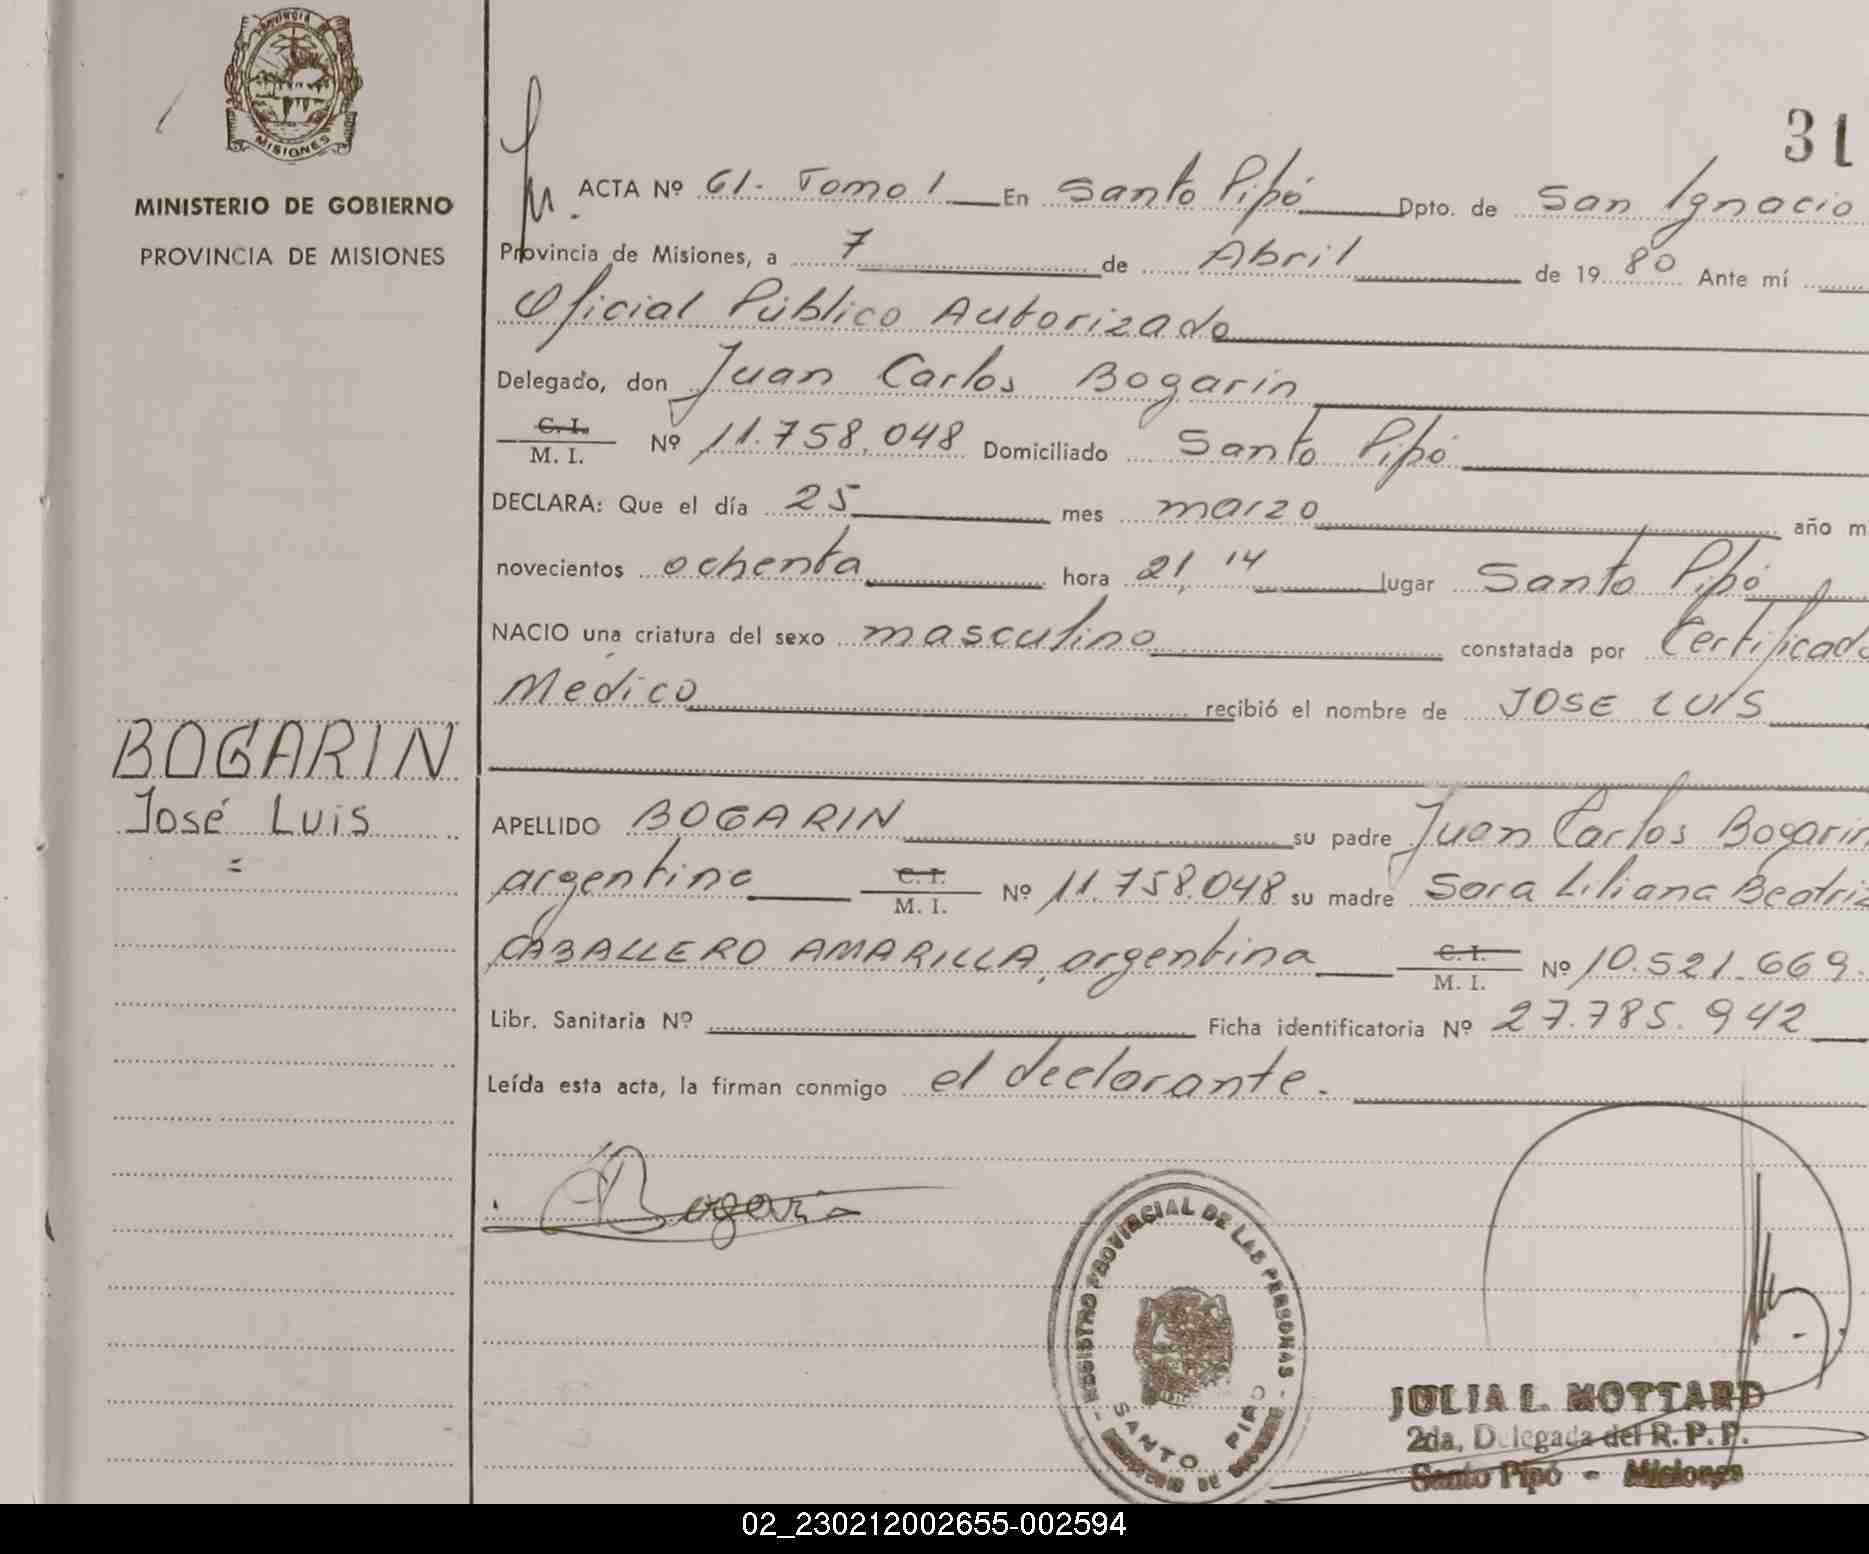 PROVINCIA DE
MISIONES
MINISTERIO DE GOBIERNO
PROVINCIA DE MISIONES
BOGARIN
José Luis
=
31
ACTA Nº 61. Tomo 1 En Santo Pipó Dpto. de San Ignacio
Provincia de Misiones, a 7 de Abril de 1980 Ante mí
Oficial Público Autorizado
Delegado, don Juan Carlos Bogarin
C. I.
M. I. Nº 11.758.048 Domiciliado Santo Pipó
DECLARA: Que el día 25 mes marzo año m
novecientos ochenta hora 21,14 lugar Santo Pipó
NACIO una criatura del sexo masculino constatada por Certificado
Medico recibió el nombre de JOSE LUIS
APELLIDO BOGARIN su padre Juan Carlos Bogarin
argentino C. I.
M. I. Nº 11.758.048 su madre Sara Liliana Beatriz
CABALLERO AMARILLA, argentina C. I.
M. I. Nº 10.521.669.
Libr. Sanitaria Nº Ficha identificatoria Nº 27.785.942
Leída esta acta, la firman conmigo el declarante.
Bogarin
REGISTRO PROVINCIAL DE LAS PERSONAS
SANTO PIPO
MINISTERIO DE GOBIERNO
JULIA L. MOTTARD
2da. Delegada del R. P. P.
Santo Pipó - Misiones
02_230212002655-002594